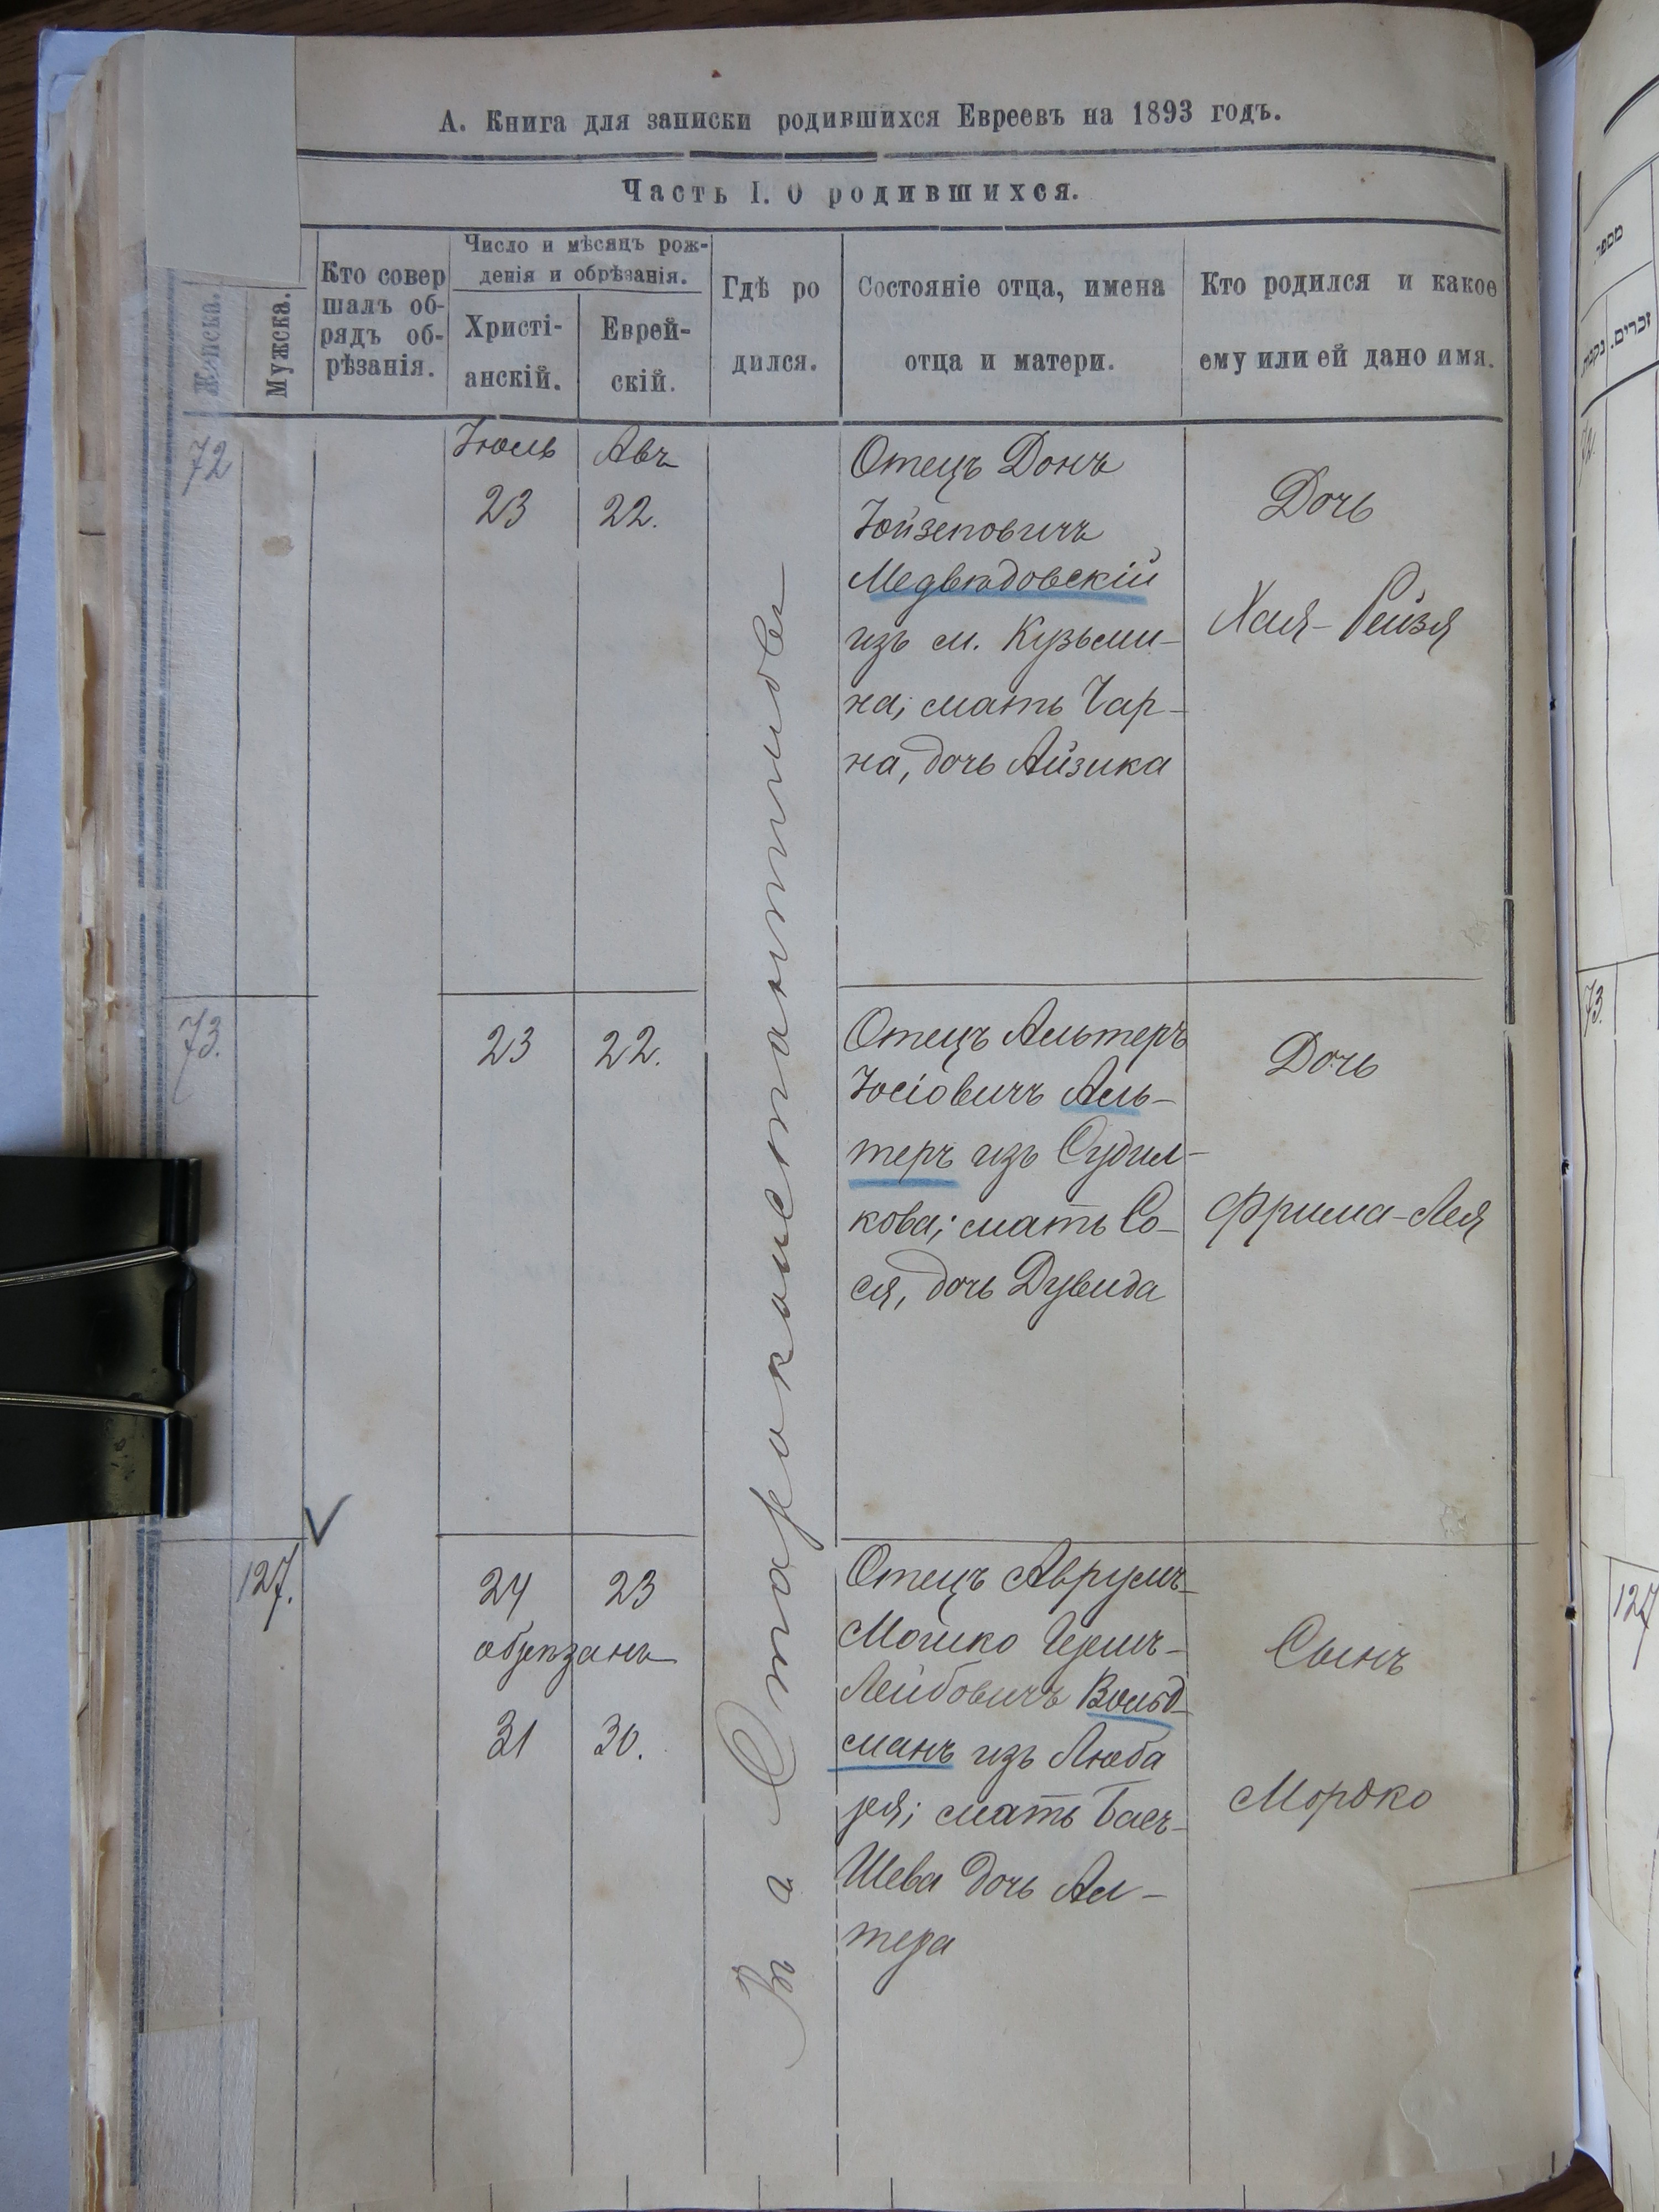 А. Книга для записки родившихся Евреевъ на 1893 годъ.
Часть I. О родившихся.
Женска.
Мужска.
Кто совер
шалъ об-
рядъ об-
рѣзанія.
Число и мѣсяцъ рож-
денія и обрѣзанія.
Христі-
анскій.
Еврей-
скій.
Гдѣ ро
дился.
Состояніе отца, имена
отца и матери.
Кто родился и какое
ему или ей дано имя.
72
Іюль
23
Авъ
22.
Отецъ Донъ
Іойзеповичъ
Медвѣдовскій
изъ м. Кузьми-
на; мать Чар-
на, дочь Айзика
Дочь
Хая-Рейзя
73.
23
22.
Отецъ Альтеръ
Іосіовичъ Аль-
теръ изъ Судил-
кова; мать Со-
ся, дочь Дувида
Дочь
Фрима-Лея
127.
24
23
обрѣзанъ
31
30.
Отецъ Аврумъ-
Мошко Гершъ-
Лейбовичъ Вольд-
манъ изъ Люба
ря; мать Басъ-
Шева дочь Ал-
тера
Сынъ
Мордко
Въ Староконстантиновѣ
מספר
נקבות
זכרים.
72.
73.
127